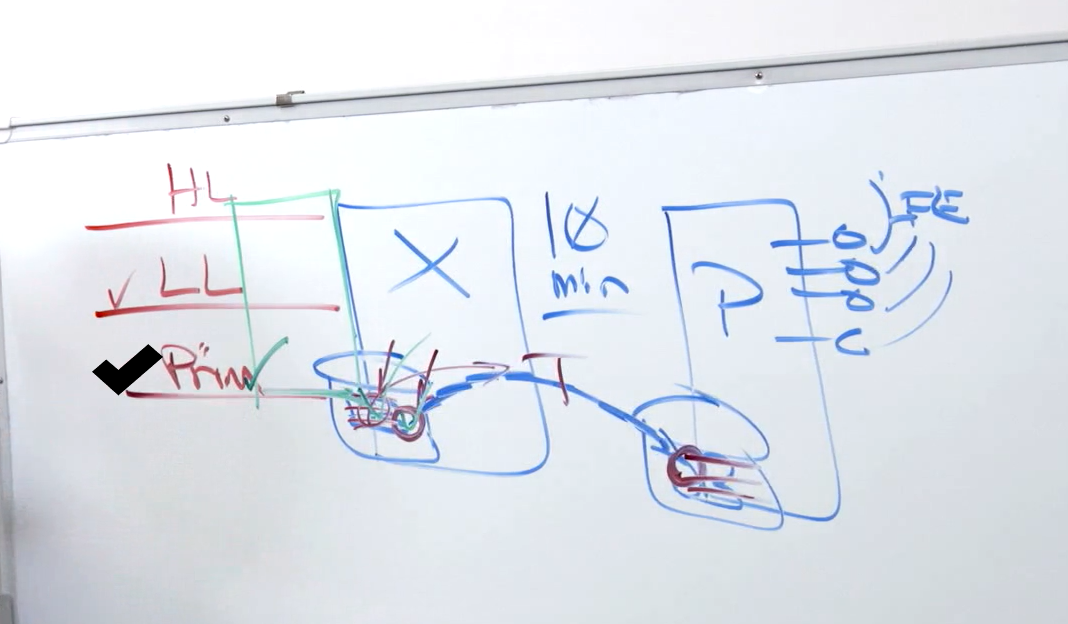 HL
✓ LL
✔ Prim ✓
X
10
min
T
P
FE